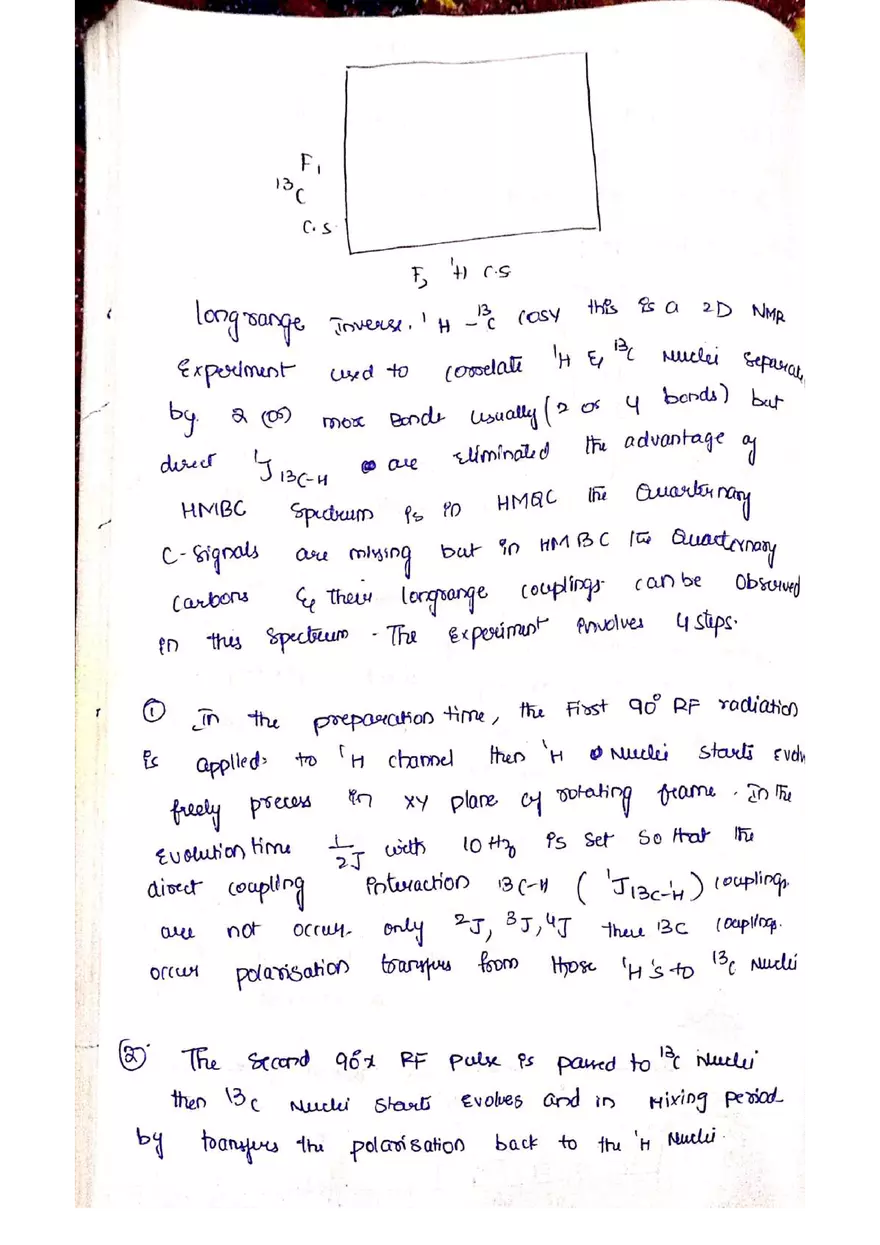 F1
13C
C.S.
F2 1H C.S
longrange Inverse. 1H - 13C cosy this is a 2D NMR
Experiment used to correlate 1H & 13C Nuclei Separat
by 2 (or) more Bonds usually (2 or 4 bonds) but
direct 1J13C-H are Eliminated the advantage of
HMBC Spectrum is in HMQC the Quarternary
C-signals are missing but in HMBC the Quarternary
Carbons & their longrange couplings can be Observed
in this Spectrum. The Experiment involves 4 steps.
① In the preparation time, the First 90° RF radiation
is applied to 1H channel then 1H Nuclei starts Evolv
freely precess in xy plane of rotating frame. In the
Evolution time 1/2J with 10 Hz is set so that the
direct coupling interaction 13C-H (1J13C-1H) couplings
are not occur. only 2J, 3J, 4J there 13C couplings.
occur polarisation transfers from those 1H's to 13C Nuclei
② The second 90°x RF pulse is passed to 13C Nuclei
then 13C Nuclei starts Evolves and in Mixing period
by transfers the polarisation back to the 1H Nuclei.